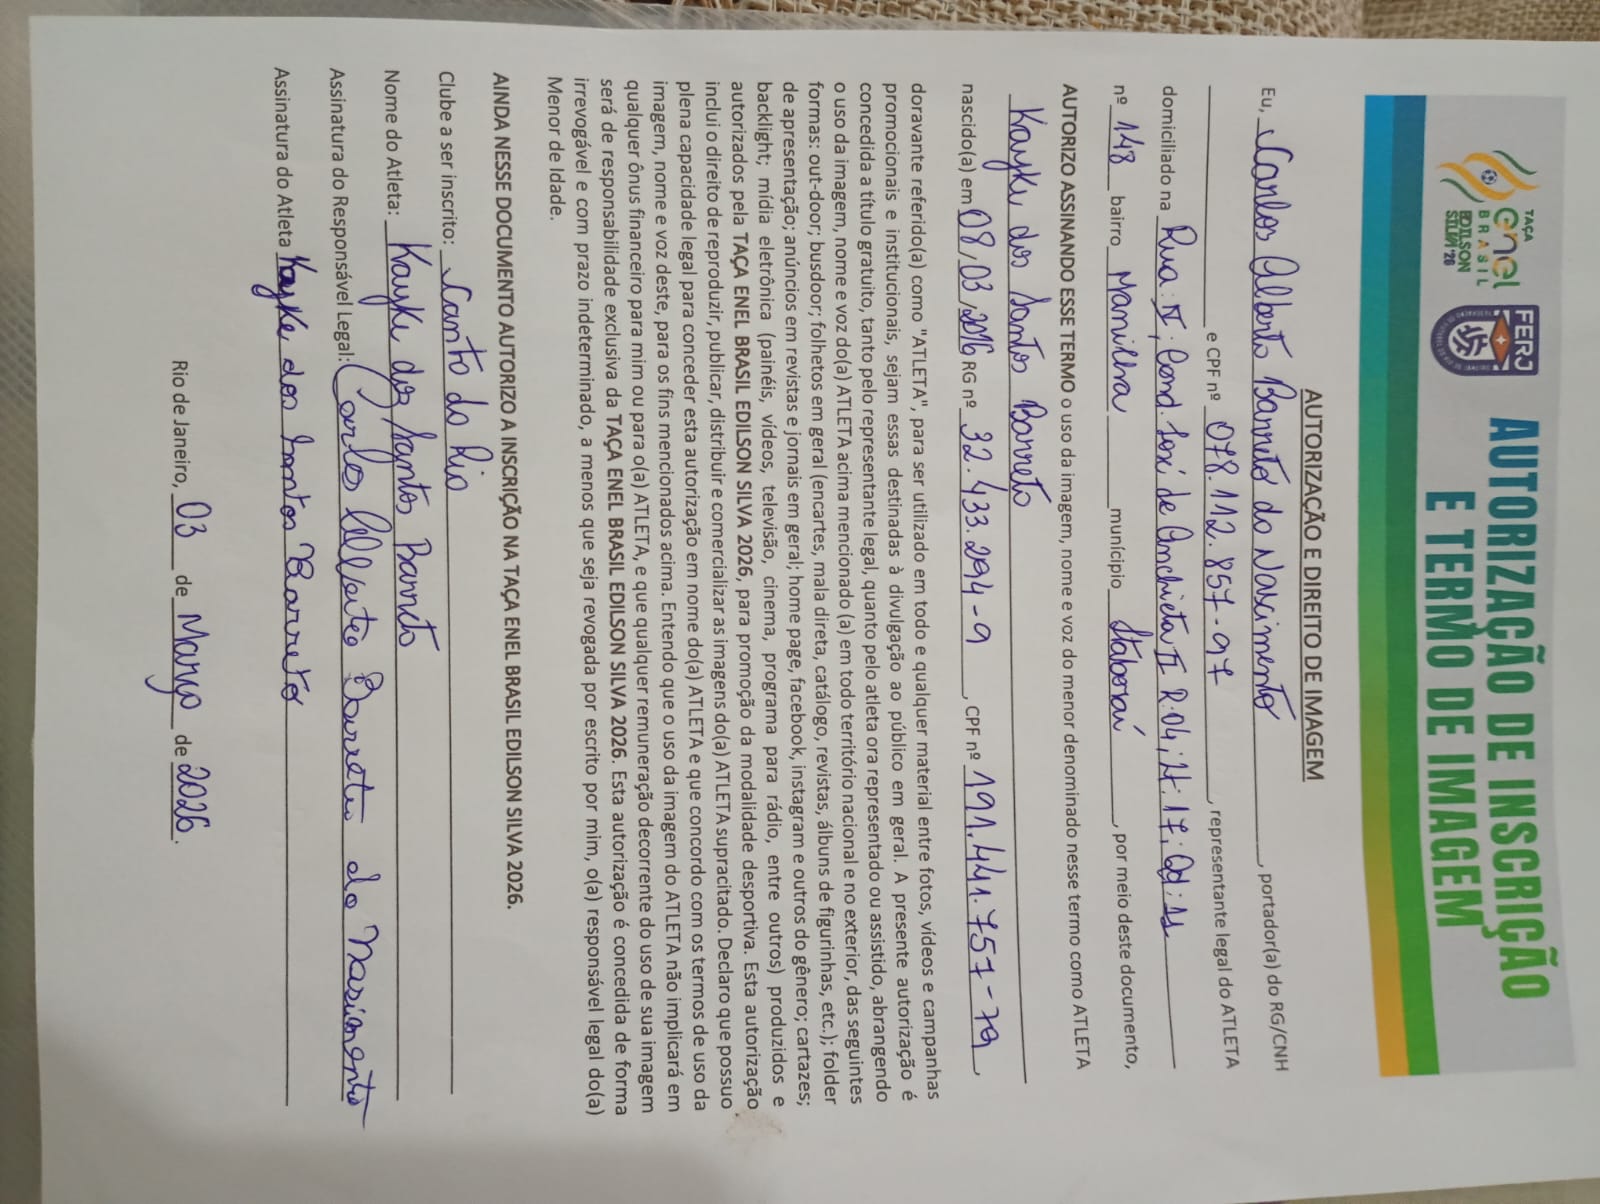 TAÇA
enel
BRASIL
EDILSON
SILVA'26
FERJ
AUTORIZAÇÃO DE INSCRIÇÃO
E TERMO DE IMAGEM
AUTORIZAÇÃO E DIREITO DE IMAGEM
Eu, Carlos Alberto Barreto do Nascimento, portador(a) do RG/CNH
e CPF nº 078.112.857-97, representante legal do ATLETA
domiciliado na Rua: IV; Cond. José de Anchieta II R.04; Lt: 17; Qd: 11
nº 148 bairro Manilha município Itaboraí, por meio deste documento,
AUTORIZO ASSINANDO ESSE TERMO o uso da imagem, nome e voz do menor denominado nesse termo como ATLETA
Kayke dos Santos Barreto
nascido(a) em 08/03/2016 RG nº 32.433.294-9, CPF nº 191.441.757-79,
doravante referido(a) como "ATLETA", para ser utilizado em todo e qualquer material entre fotos, vídeos e campanhas
promocionais e institucionais, sejam essas destinadas à divulgação ao público em geral. A presente autorização é
concedida a título gratuito, tanto pelo representante legal, quanto pelo atleta ora representado ou assistido, abrangendo
o uso da imagem, nome e voz do(a) ATLETA acima mencionado(a) em todo território nacional e no exterior, das seguintes
formas: out-door; busdoor; folhetos em geral (encartes, mala direta, catálogo, revistas, álbuns de figurinhas, etc.); folder
de apresentação; anúncios em revistas e jornais em geral; home page, facebook, instagram e outros do gênero; cartazes;
backlight; mídia eletrônica (painéis, vídeos, televisão, cinema, programa para rádio, entre outros) produzidos e
autorizados pela TAÇA ENEL BRASIL EDILSON SILVA 2026, para promoção da modalidade desportiva. Esta autorização
inclui o direito de reproduzir, publicar, distribuir e comercializar as imagens do(a) ATLETA supracitado. Declaro que possuo
plena capacidade legal para conceder esta autorização em nome do(a) ATLETA e que concordo com os termos de uso da
imagem, nome e voz deste, para os fins mencionados acima. Entendo que o uso da imagem do ATLETA não implicará em
qualquer ônus financeiro para mim ou para o(a) ATLETA, e que qualquer remuneração decorrente do uso de sua imagem
será de responsabilidade exclusiva da TAÇA ENEL BRASIL EDILSON SILVA 2026. Esta autorização é concedida de forma
irrevogável e com prazo indeterminado, a menos que seja revogada por escrito por mim, o(a) responsável legal do(a)
Menor de Idade.
AINDA NESSE DOCUMENTO AUTORIZO A INSCRIÇÃO NA TAÇA ENEL BRASIL EDILSON SILVA 2026.
Clube a ser inscrito: Canto do Rio
Nome do Atleta: Kayke dos Santos Barreto
Assinatura do Responsável Legal: Carlos Alberto Barreto do Nascimento
Assinatura do Atleta Kayke dos Santos Barreto
Rio de Janeiro, 03 de Março de 2026.